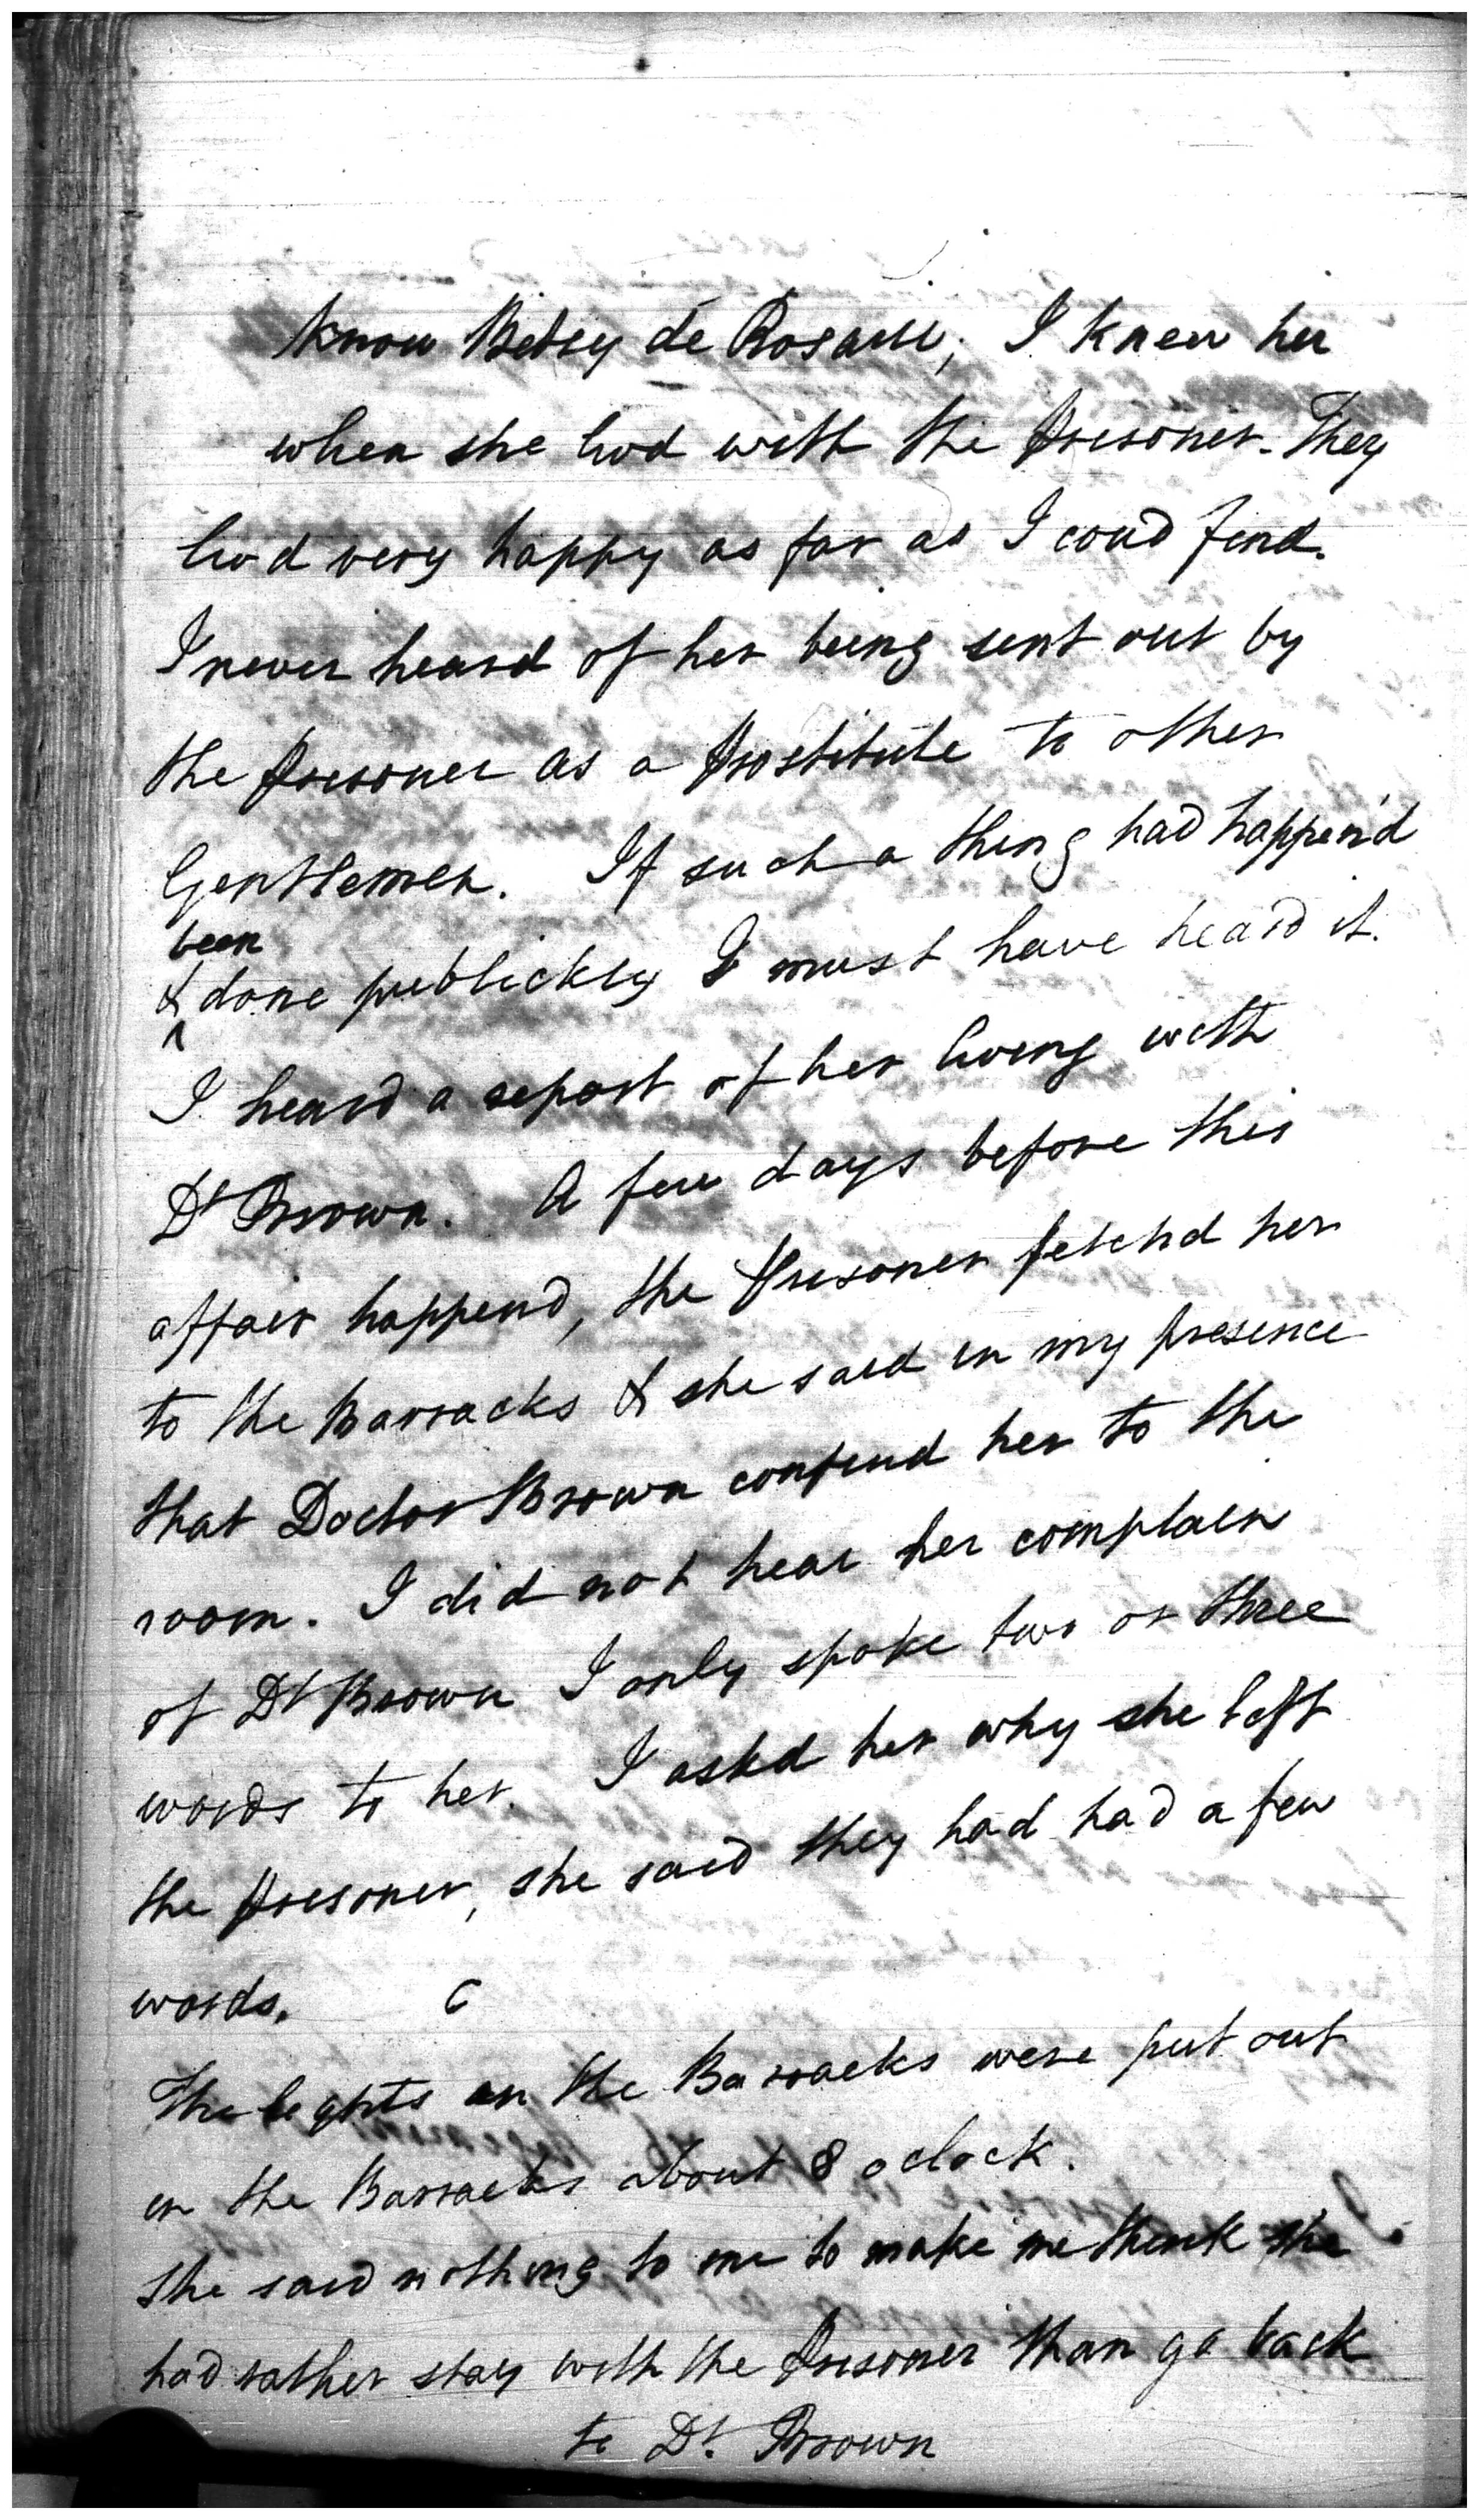 know Betsy de Rosario; I knew her
when she livd with the Prisoner. They
livd very happy as far as I coud find.
I never heard of her being sent out by
the Prisoner as a Prostitute to other
Gentlemen. If such a thing had happen'd
been
& done publickly I must have heard it.
I heard a report of her living with
Dr Brown. A few days before this
affair happend, the Prisoner fetchd her
to the Barracks & she said in my presence
that Doctor Brown confind her to the
room. I did not hear her complain
of Dr Brown I only spoke two or three
words to her. I askd her why she left
the Prisoner, she said they had had a few
words.
The lights in the Barracks were put out
in the Barracks about 8 oclock.
She said nothing to me to make me think she
had rather stay with the Prisoner than go back
to Dr. Brown